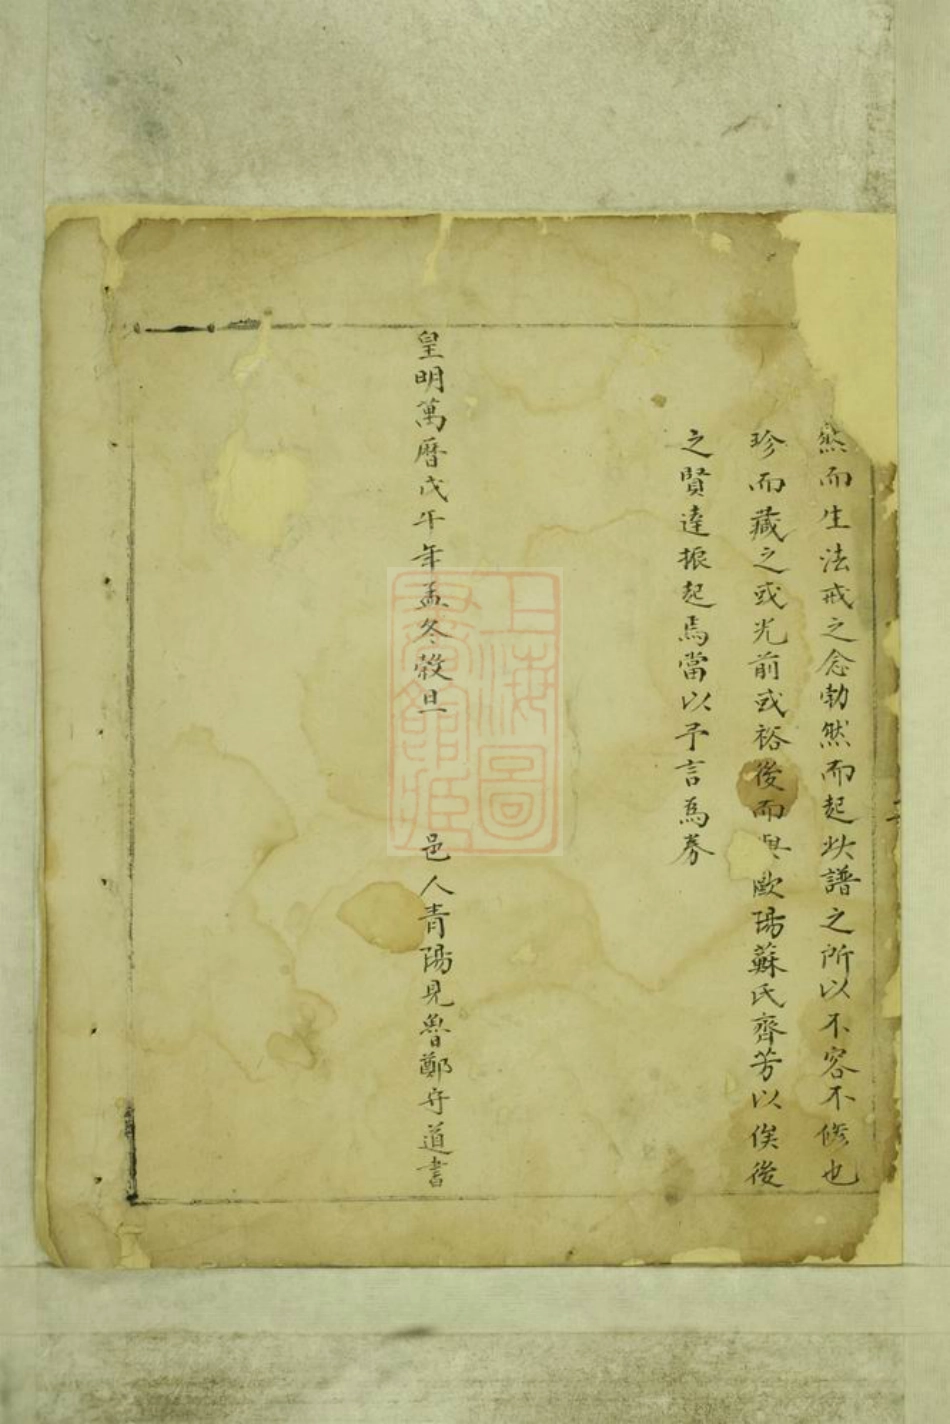 然而生法戒之念勃然而起此譜之所以不容不修也
珍而藏之或光前或裕後而與歐陽蘇氏齊芳以俟後
之賢達振起焉當以予言為券
皇明萬曆戊午年孟冬穀旦
邑人青陽見魯鄭守道書
上海圖書館藏